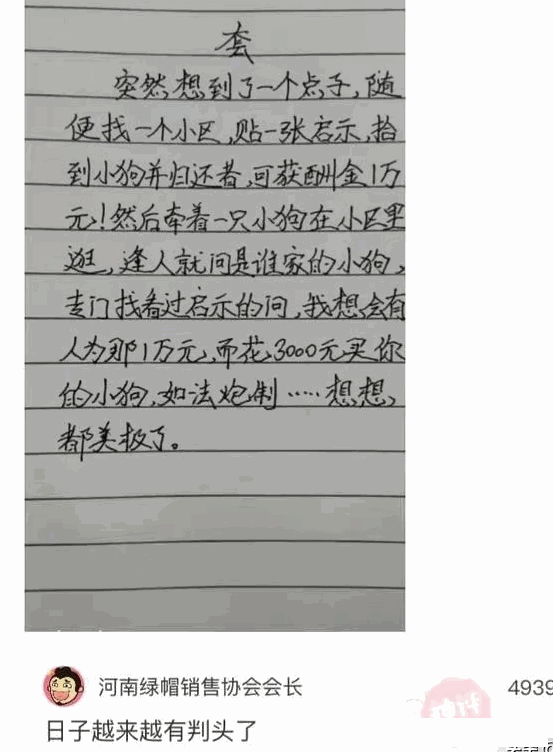 套
突然想到了一个点子,随
便找一个小区,贴一张启示,拾
到小狗并归还者,可获酬金1万
元!然后牵着一只小狗在小区里
逛,逢人就问是谁家的小狗,
专门找看过启示的问,我想会有
人为那1万元,而花3000元买你
的小狗,如法炮制……想想,
都美极了。
河南绿帽销售协会会长
4939
日子越来越有判头了